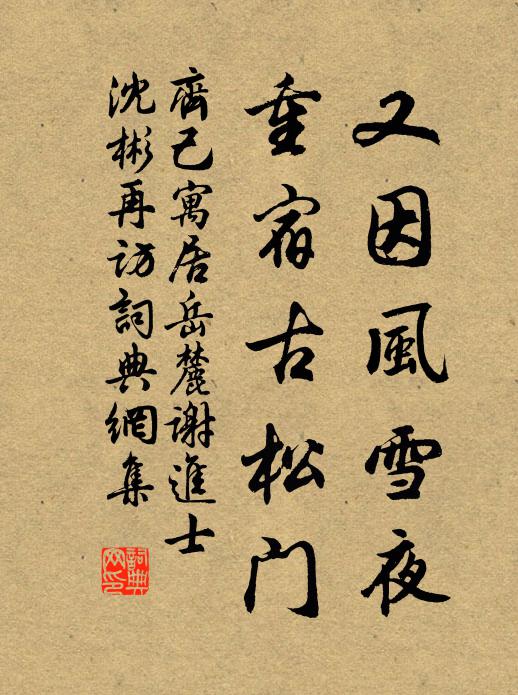 又因風雪夜
重宿古松門
齊己寓居岳麓謝進士
沈彬再訪詞典網集
詞典网印